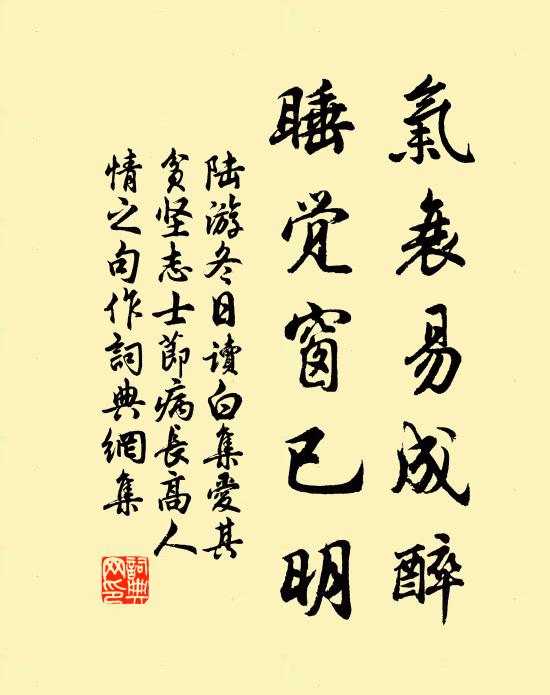 氣衰易成醉
睡觉窗已明
陆游冬日读白集爱其
贫坚志士節病長高人
情之句作詞典網集
詞典網印